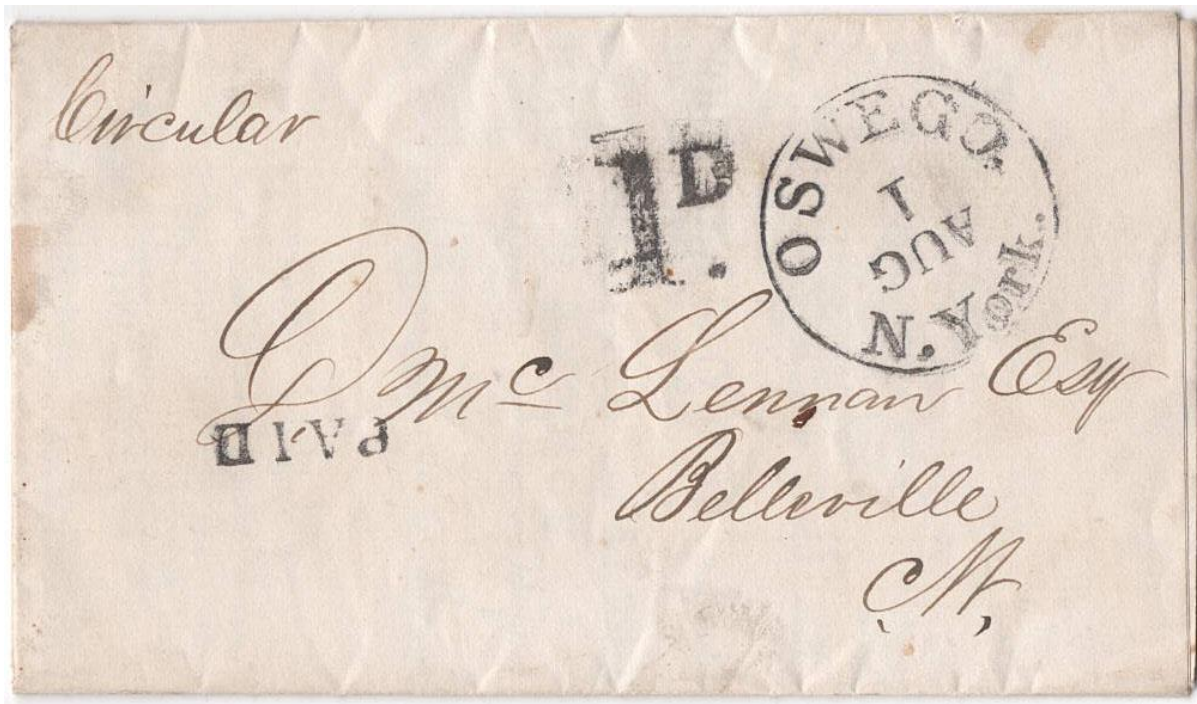 Circular
1D.
OSWEGO.
1
AUG
N.York.
D McLennan Esq
PAID
Belleville